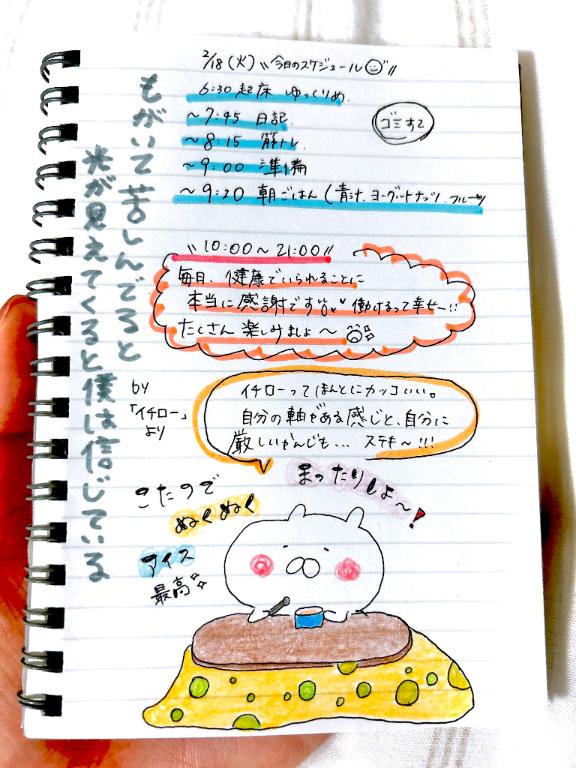 2/18(火) \\今日のスケジュール//
6:30 起床 ゆっくりめ
~7:45 日記
~8:15 筋トレ
~9:00 準備
~9:20 朝ごはん (青汁、ヨーグルトナッツ、フルーツ
ゴミすて
\\10:00~21:00//
毎日、健康でいられることに
本当に感謝です♡ 働けるって幸せー!!
たくさん楽しみましょ~
イチローってほんとにカッコいい。
自分の軸がある感じと、自分に
厳しいかんじも... ステキ~!!!
もがいて苦しんでると
光が見えてくると僕は信じている
by
「イチロー」
より
こたつで
ぬくぬく
アイス
最高
まったりしよ~!